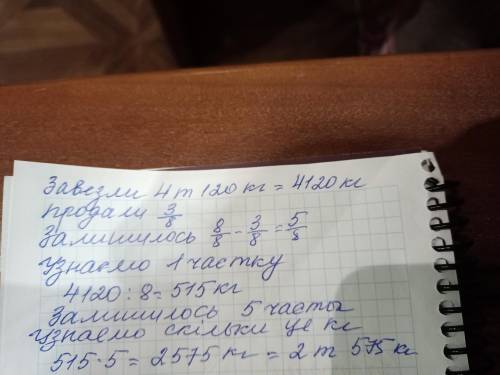 Завезли 4 т 120 кг = 4120 кг
продали 3/8
Залишилось 8/8 - 3/8 = 5/8
Узнаємо 1 частку
4120 : 8 = 515 кг
Залишилось 5 часты
Узнаємо скільки це кг
515 · 5 = 2575 кг = 2 т 575 кг